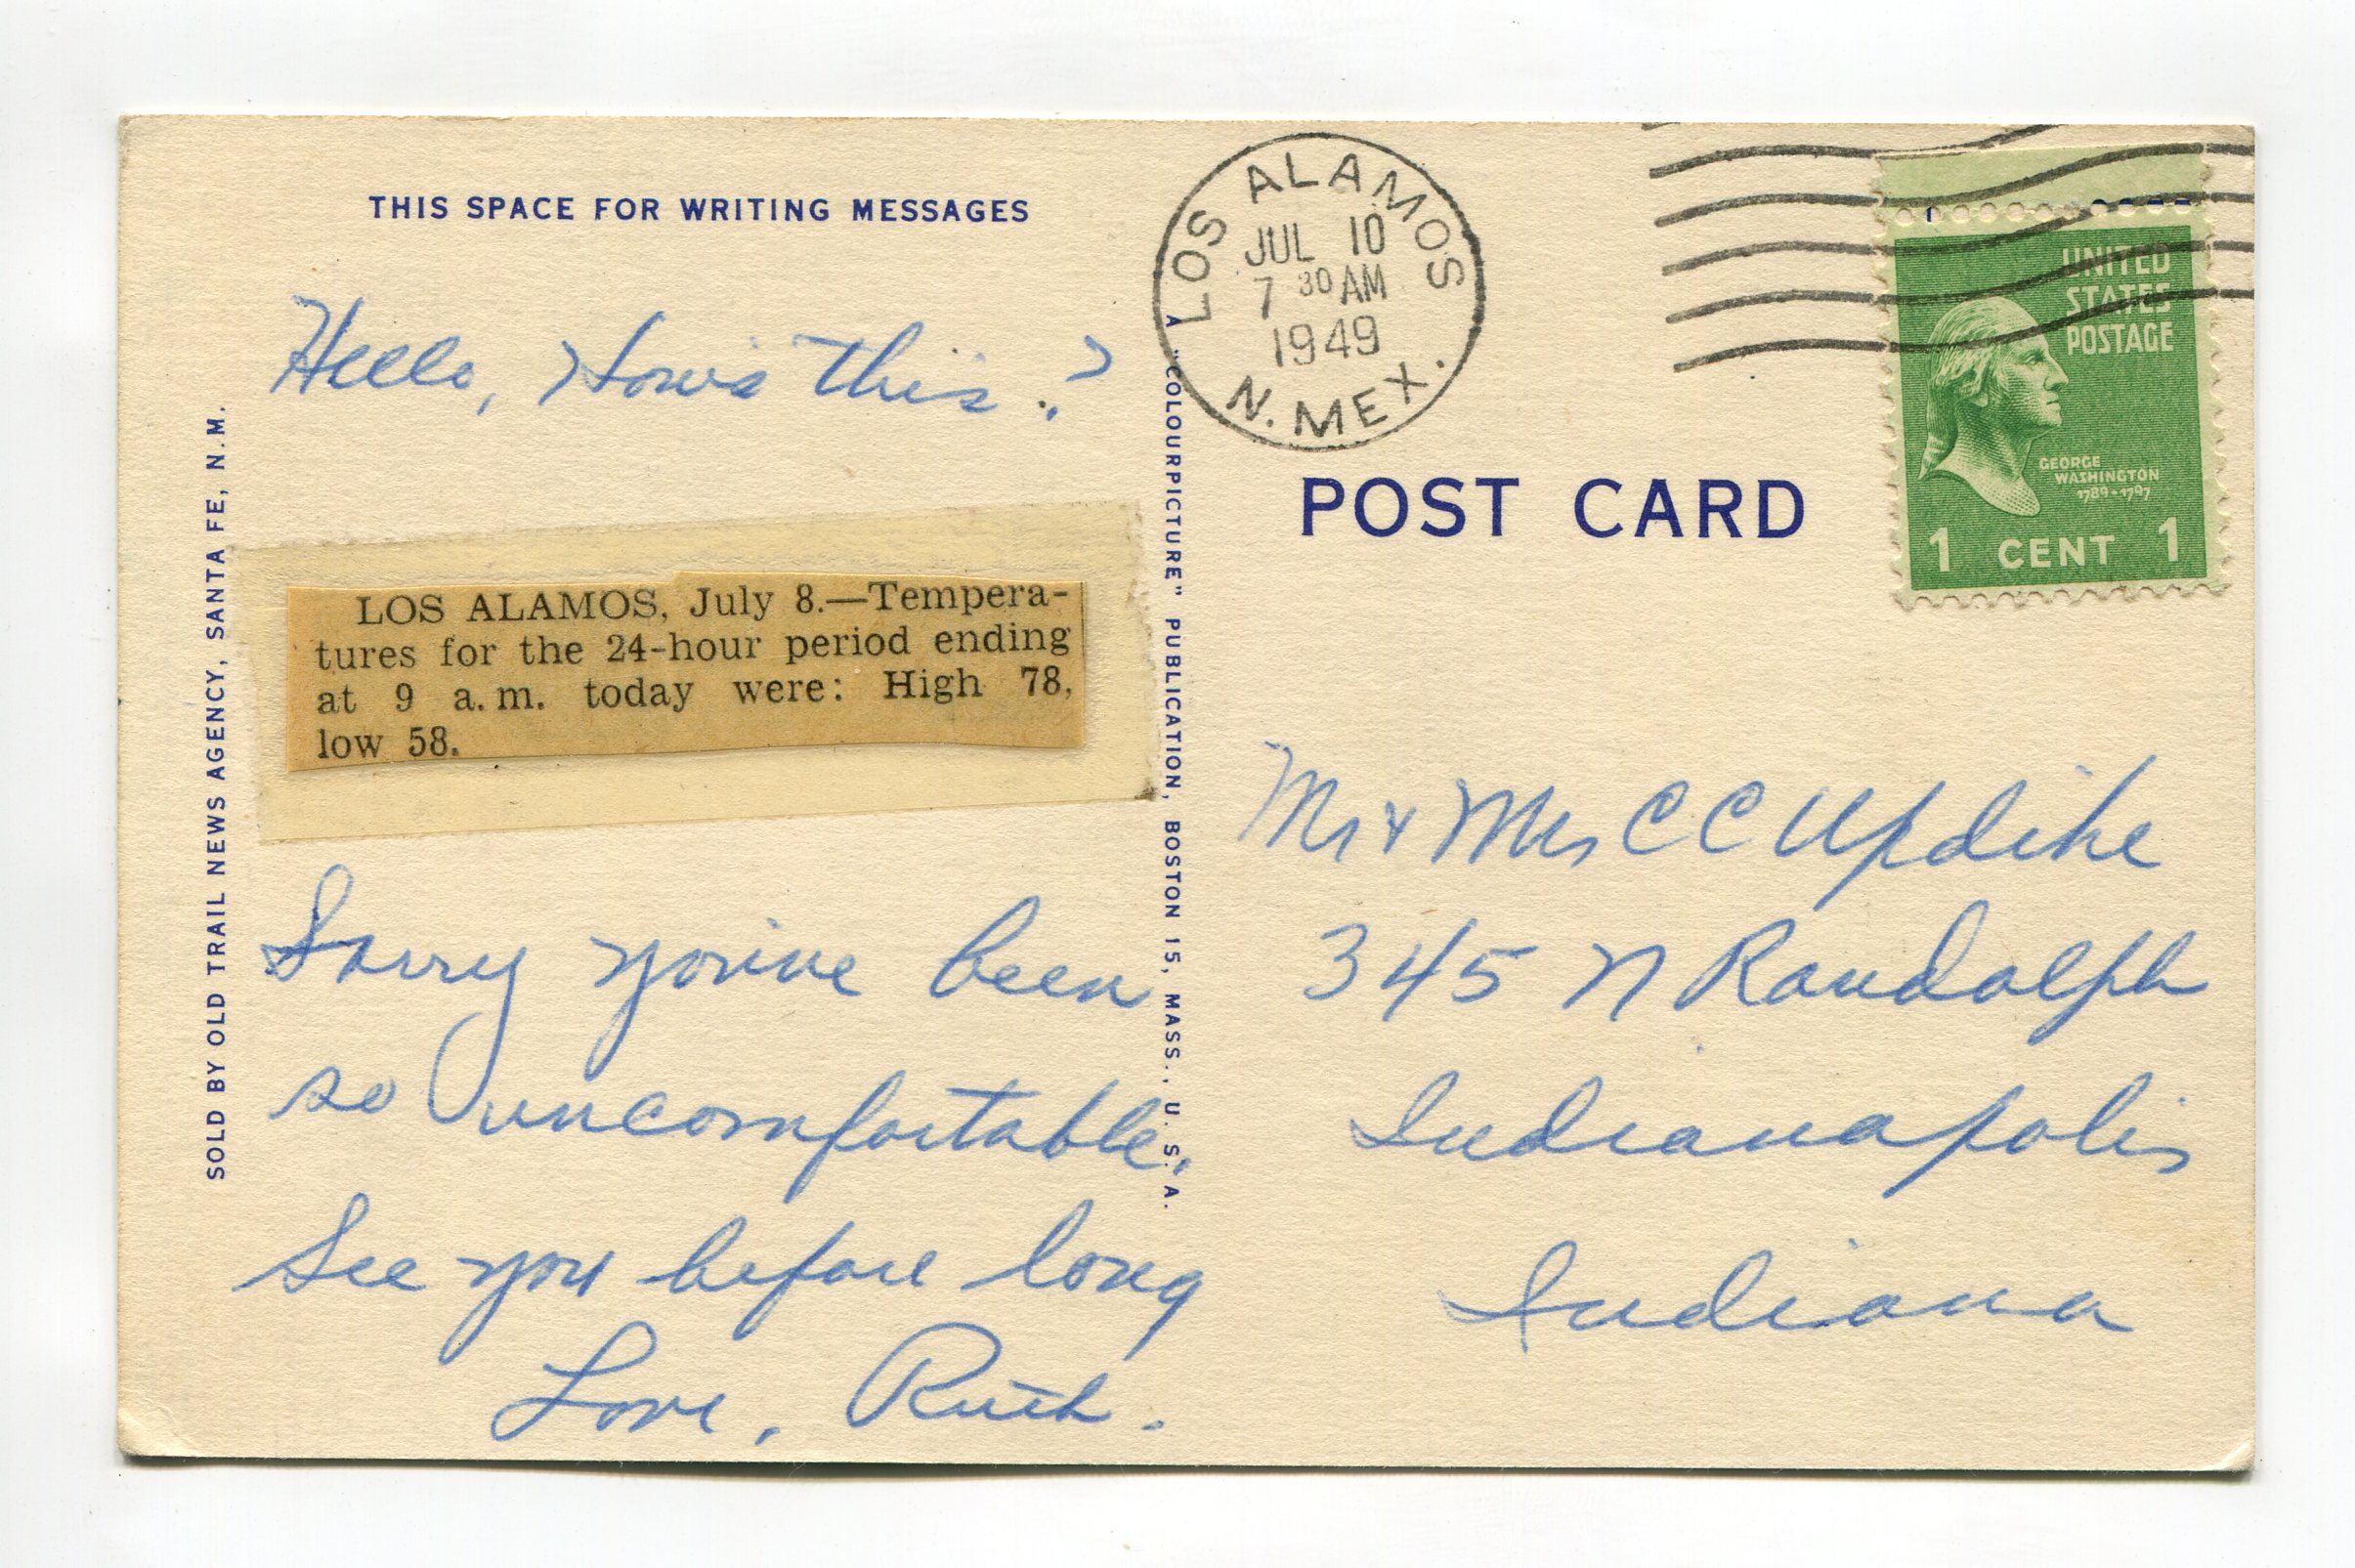 THIS SPACE FOR WRITING MESSAGES
Hello, How's this?
LOS ALAMOS, July 8.—Tempera-
tures for the 24-hour period ending
at 9 a.m. today were: High 78,
low 58.
Sorry you've been
so uncomfortable.
See you before long
Love, Ruth.
SOLD BY OLD TRAIL NEWS AGENCY, SANTA FE, N.M.
A "COLOURPICTURE" PUBLICATION, BOSTON 15, MASS., U. S. A.
LOS ALAMOS
JUL 10
7 30 AM
1949
N. MEX.
UNITED
STATES
POSTAGE
GEORGE
WASHINGTON
1789-1797
1 CENT 1
POST CARD
Mr & Mrs C C Updike
345 N Randolph
Indianapolis
Indiana